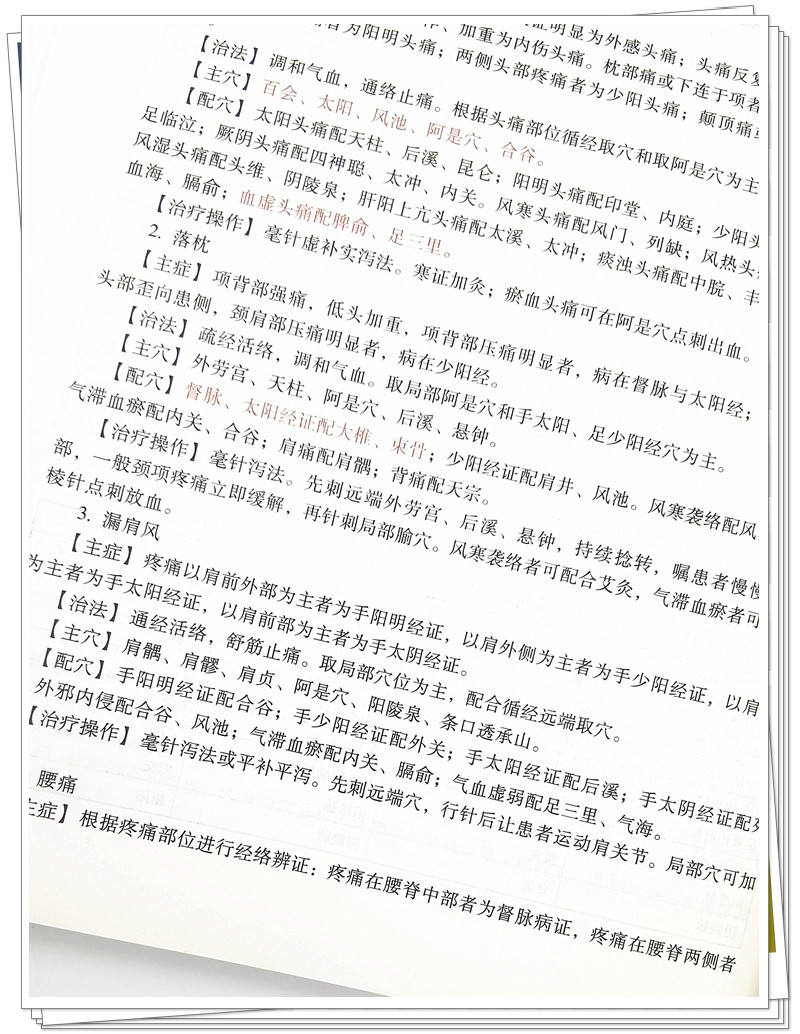 证明显为外感头痛；头痛反复
、加重为内伤头痛。枕部痛或下连于项者
者为阳明头痛；两侧头部疼痛者为少阳头痛；颠顶痛或
【治法】调和气血，通络止痛。根据头痛部位循经取穴和取阿是穴为主
【主穴】百会、太阳、风池、阿是穴、合谷。
【配穴】太阳头痛配天柱、后溪、昆仑；阳明头痛配印堂、内庭；少阳头
足临泣；厥阴头痛配四神聪、太冲、内关。风寒头痛配风门、列缺；风热头
风湿头痛配头维、阴陵泉；肝阳上亢头痛配太溪、太冲；痰浊头痛配中脘、丰
血海、膈俞；血虚头痛配脾俞、足三里。
【治疗操作】毫针虚补实泻法。寒证加灸；瘀血头痛可在阿是穴点刺出血。
2. 落枕
【主症】项背部强痛，低头加重，项背部压痛明显者，病在督脉与太阳经；
头部歪向患侧，颈肩部压痛明显者，病在少阳经。
【治法】疏经活络，调和气血。取局部阿是穴和手太阳、足少阳经穴为主。
【主穴】外劳宫、天柱、阿是穴、后溪、悬钟。
【配穴】督脉、太阳经证配大椎、束骨；少阳经证配肩井、风池。风寒袭络配风
气滞血瘀配内关、合谷；肩痛配肩髃；背痛配天宗。
【治疗操作】毫针泻法。先刺远端外劳宫、后溪、悬钟，持续捻转，嘱患者慢慢
部，一般颈项疼痛立即缓解，再针刺局部腧穴。风寒袭络者可配合艾灸，气滞血瘀者可
棱针点刺放血。
3. 漏肩风
【主症】疼痛以肩前外部为主者为手阳明经证，以肩外侧为主者为手少阳经证，以肩
为主者为手太阳经证，以肩前部为主者为手太阴经证。
【治法】通经活络，舒筋止痛。取局部穴位为主，配合循经远端取穴。
【主穴】肩髃、肩髎、肩贞、阿是穴、阳陵泉、条口透承山。
【配穴】手阳明经证配合谷；手少阳经证配外关；手太阳经证配后溪；手太阴经证配列
外邪内侵配合谷、风池；气滞血瘀配内关、膈俞；气血虚弱配足三里、气海。
【治疗操作】毫针泻法或平补平泻。先刺远端穴，行针后让患者运动肩关节。局部穴可加
腰痛
主症】根据疼痛部位进行经络辨证：疼痛在腰脊中部者为督脉病证，疼痛在腰脊两侧者